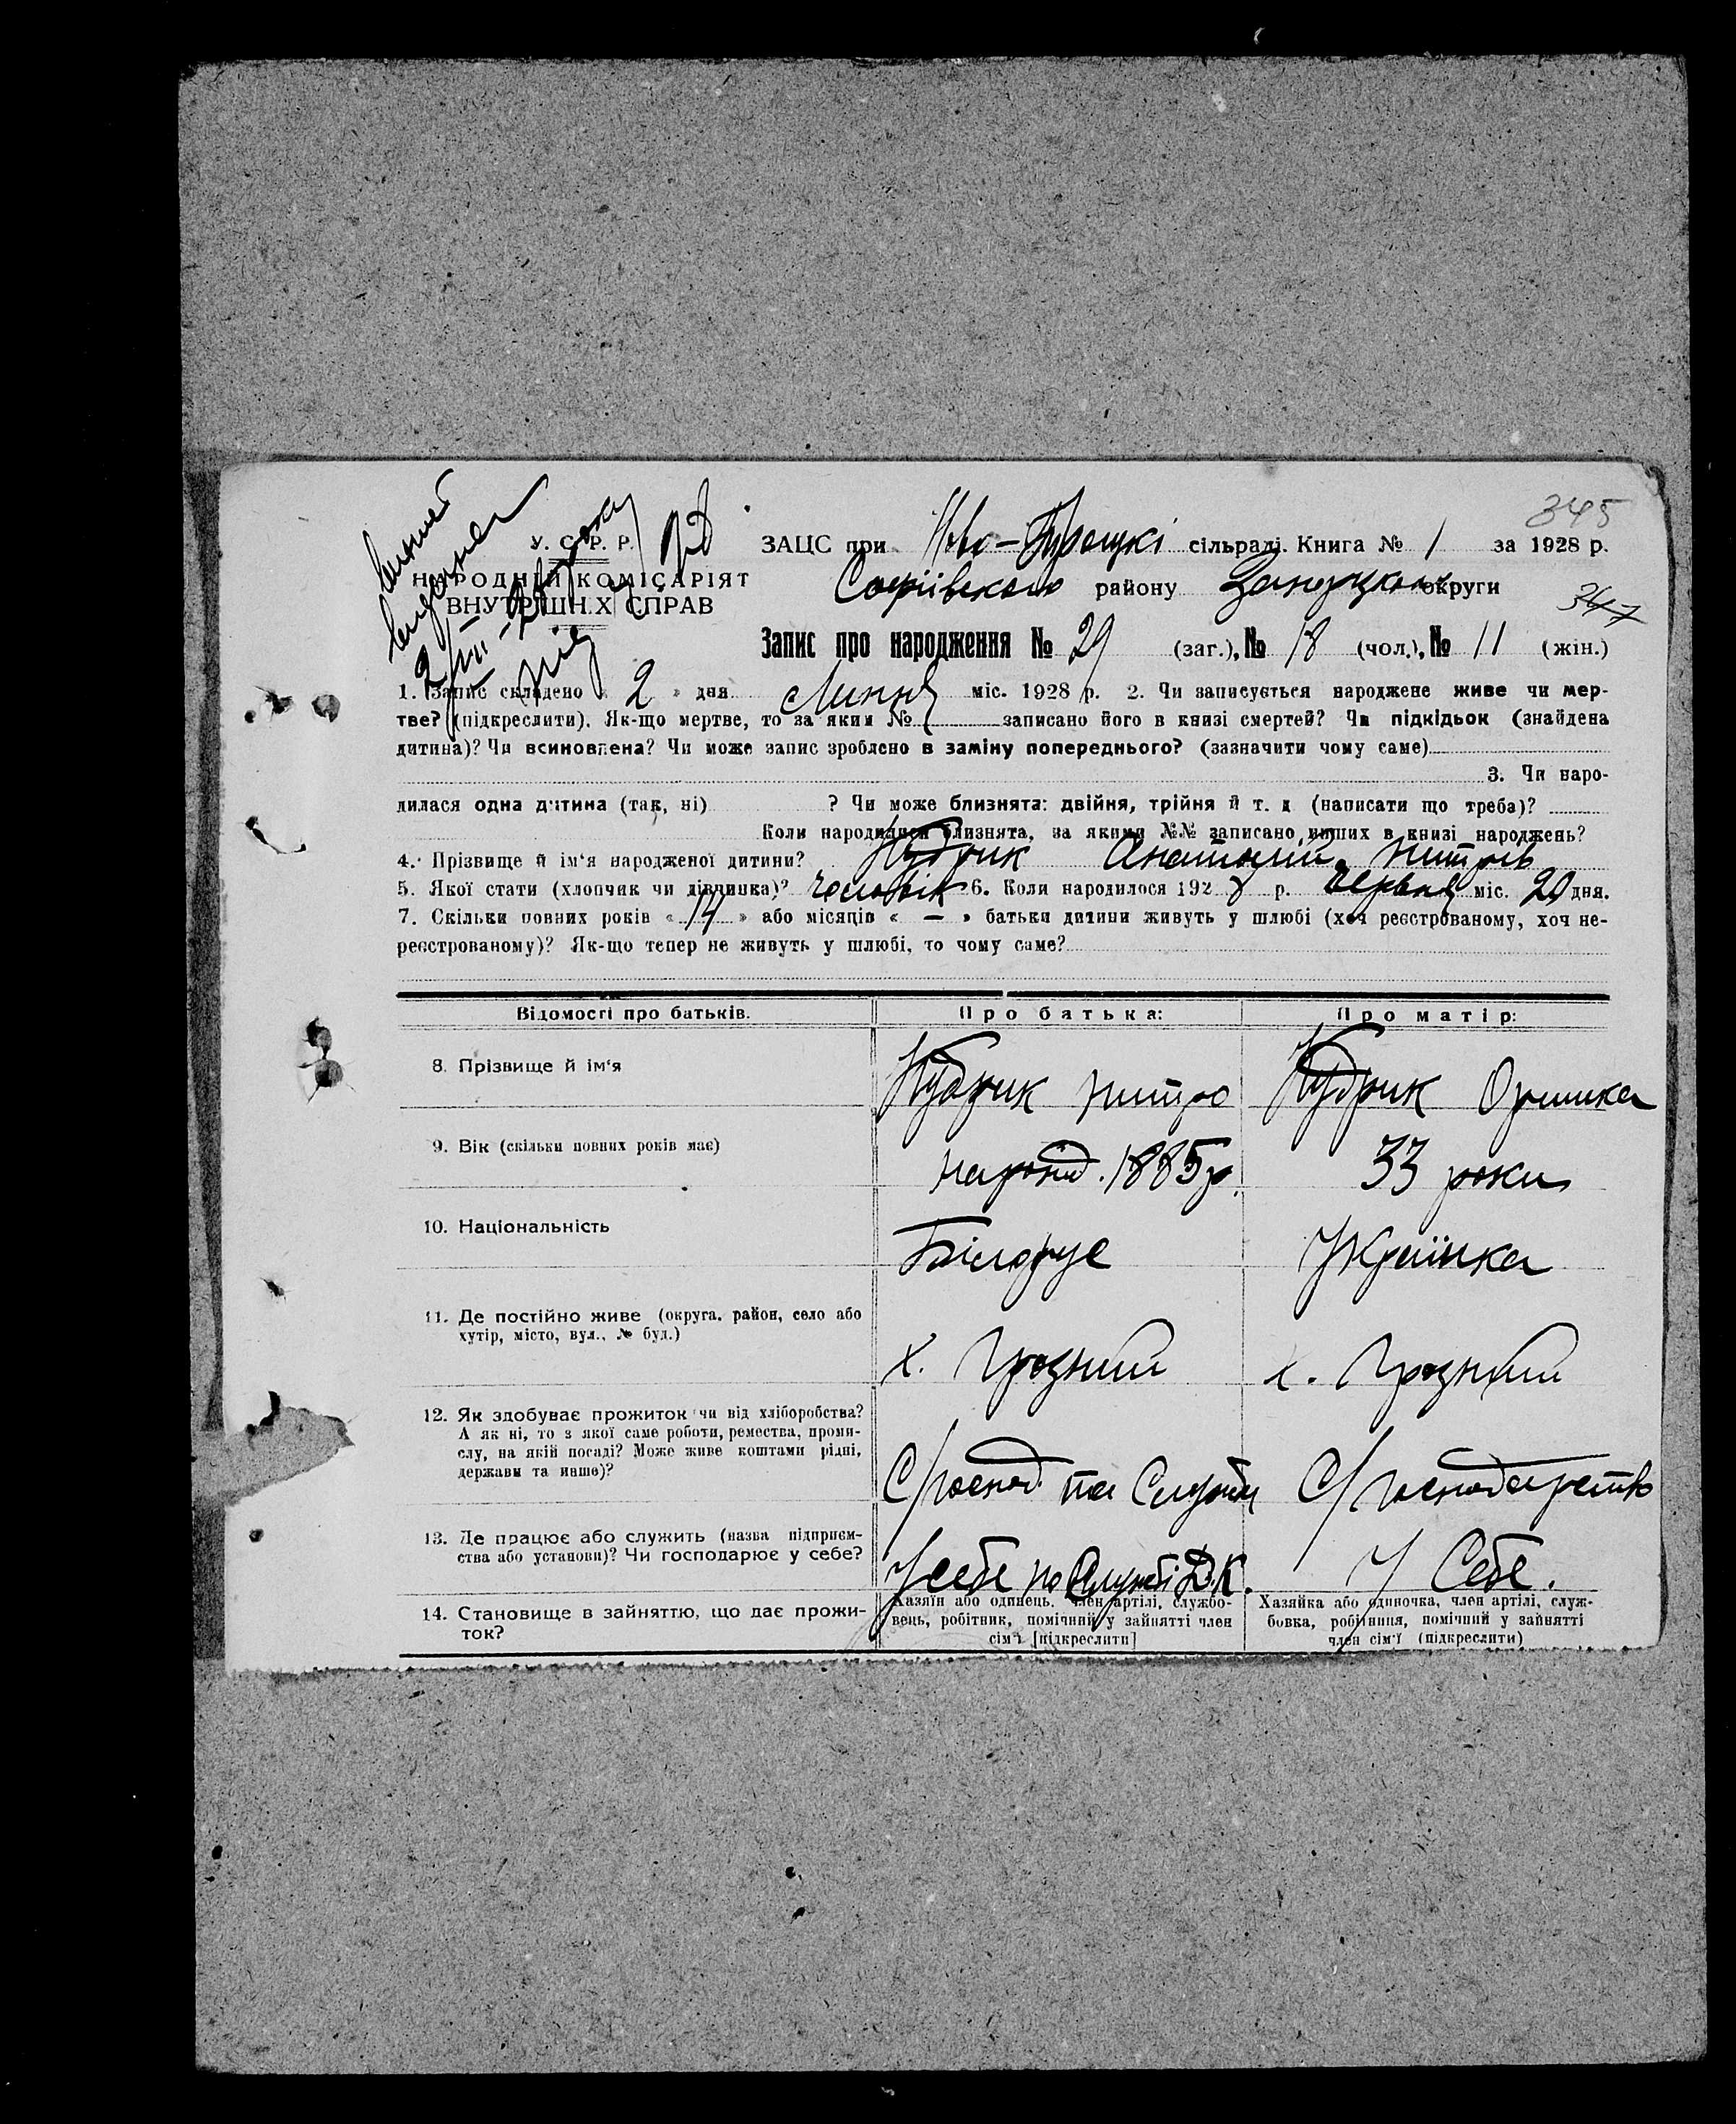 345
У. С. Р. Р.
ЗАЦС при Ново-Троцькі сільраді. Книга № 1 за 1928 р.
НАРОДНІЙ КОМІСАРІЯТ
ВНУТРІШН.Х СПРАВ
Софіївського району округи
347
Запис про народження № 29 (заг.), № 18 (чол.), № 11 (жін.)
1. Запис складено « 2 » дня Липня міс. 1928 р. 2. Чи записується народжене живе чи мер-
тве? (підкреслити). Як-що мертве, то за яким № записано його в книзі смертей? Чи підкідьок (знайдена
дитина)? Чи всиновлена? Чи може запис зроблено в заміну попереднього? (зазначити чому саме)
3. Чи наро-
дилася одна дитина (так, ні) ? Чи може близнята: двійня, трійня й т. д (написати що треба)?
Коли народилися близнята, за якими №№ записано инших в книзі народжень?
4. Прізвище й ім'я народженої дитини? Кудрик Анатолій Митрів
5. Якої статі (хлопчик чи дівчинка)? чоловік 6. Коли народилося 1928 р. червня міс. 20 дня.
7. Скільки повних років « 14 » або місяців « — » батьки дитини живуть у шлюбі (хоч реєстрованому, хоч не-
реєстрованому)? Як-що тепер не живуть у шлюбі, то чому саме?
Відомості про батьків. Про батька: Про матір:
8. Прізвище й ім'я Кудрик Митро Кудрик Оришка
9. Вік (скільки повних років має) народ. 1885р. 33 роки
10. Національність Білорус Українка
11. Де постійно живе (округа, район, село або
хутір, місто, вул., № буд.) х. Грозний х. Грозний
12. Як здобуває прожиток чи від хліборобства?
А як ні, то з якої саме роботи, ремества, проми-
слу, на якій посаді? Може живе коштами рідні,
держави та инше)? С/господ. та Служби С/господарство
13. Де працює або служить (назва підприєм-
ства або установи)? Чи господарює у себе? У себе по Службі Д.К. У Себе.
14. Становище в зайняттю, що дає прожи-
ток?
Хазяїн або одинець, член артілі, службо-
вець, робітник, помічний у зайнятті член
сім'ї [підкреслити]
Хазяйка або одиночка, член артілі, служ-
бовка, робітниця, помічний у зайнятті
член сім'ї (підкреслити)